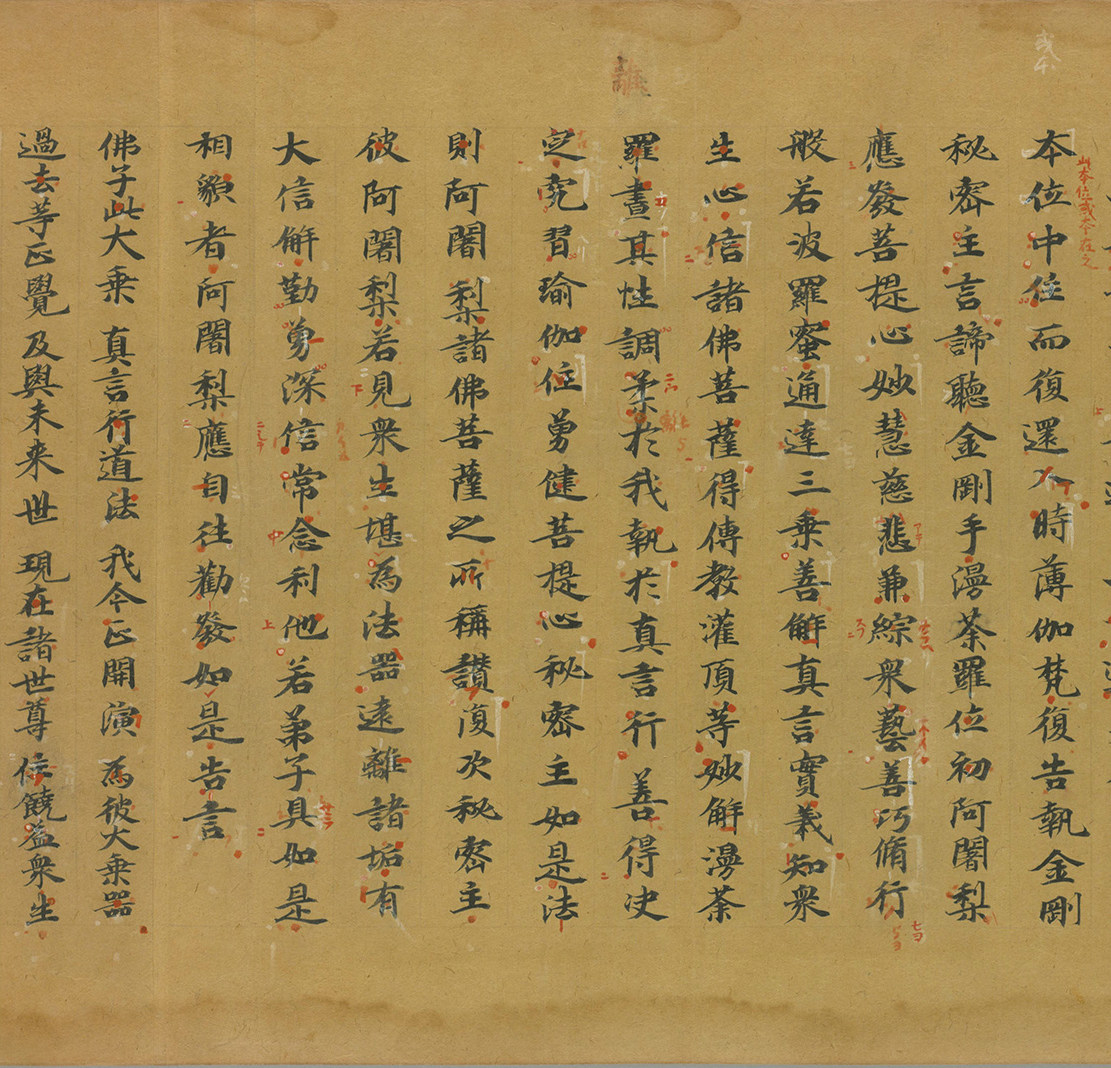 本位中住而復還入時薄伽梵復告執金剛
秘密主言諦聽金剛手漫荼羅位初阿闍梨
應發菩提心妙慧慈悲兼綜衆藝善巧脩行
般若波羅蜜通達三乗善解真言實義知衆
生心信諸佛菩薩得傳教灌頂等妙解漫荼
羅畫其性調柔於我執於真言行善得決
定究習瑜伽住勇健菩提心秘密主如是法
則阿闍梨諸佛菩薩之所稱讃復次秘密主
彼阿闍梨若見衆生堪為法器遠離諸垢有
大信解勤勇深信常念利他若弟子具如是
相貌者阿闍梨應自往勸發如是告言
佛子此大乗 真言行道法 我今正開演 為彼大乗器
過去等正覺 及與未来世 現在諸世尊 住饒益衆生
離
或本